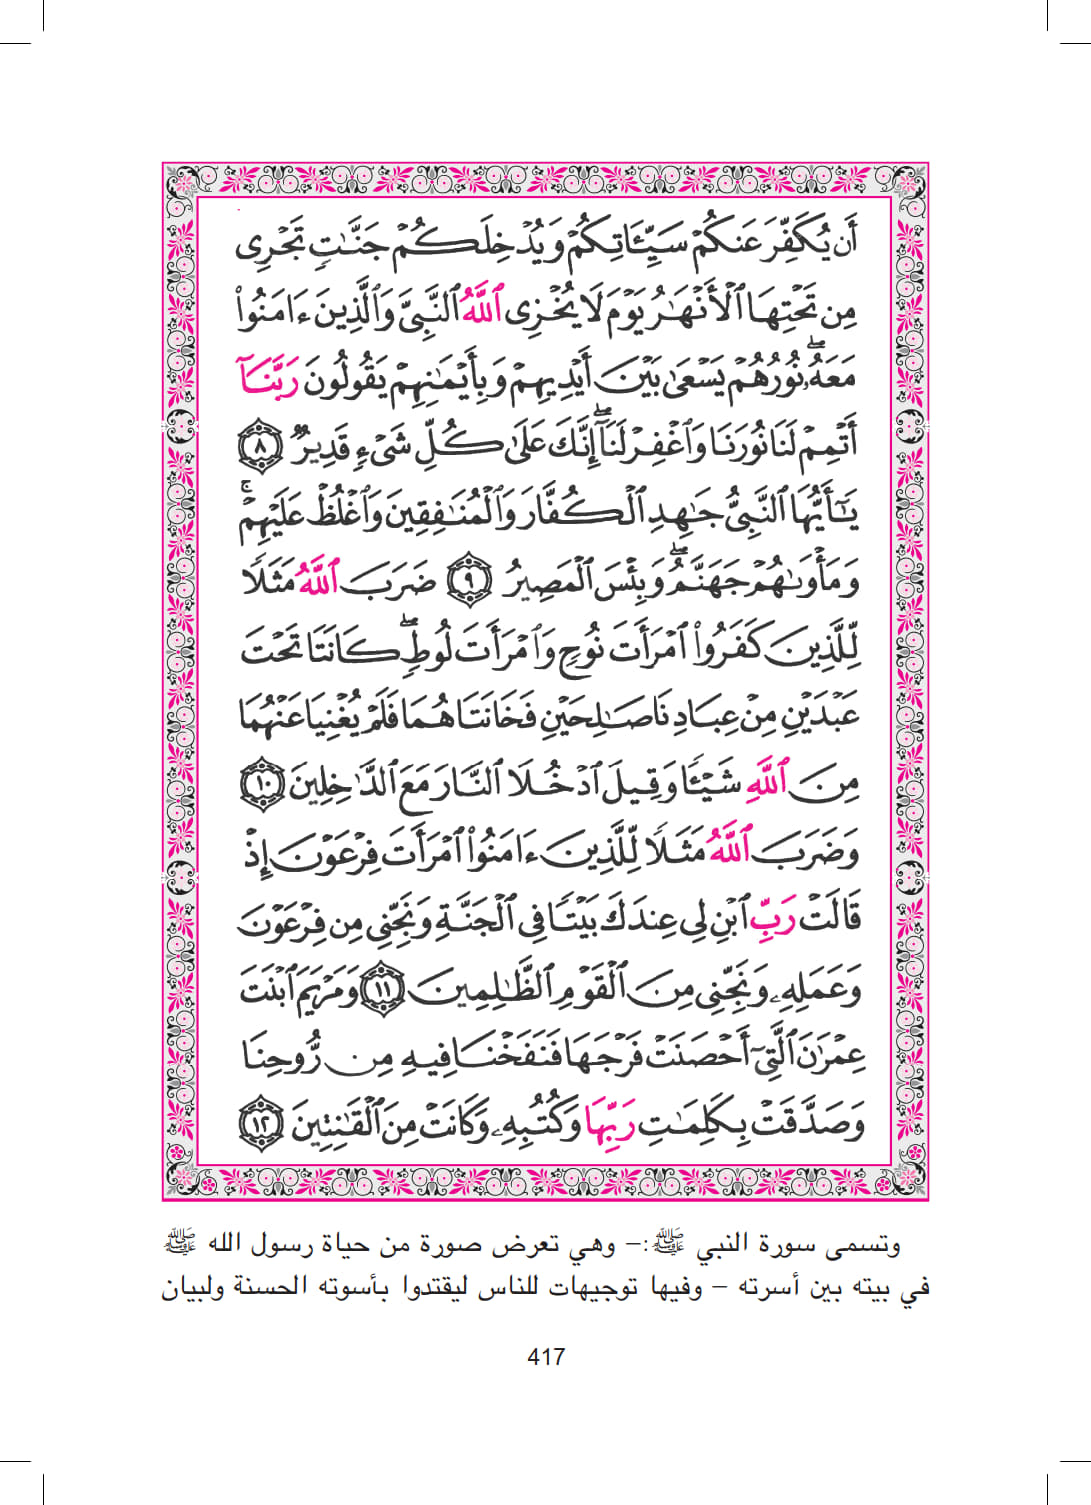 أَن يُكَفِّرَ عَنكُمْ سَيِّـَٔاتِكُمْ وَيُدْخِلَكُمْ جَنَّٰتٍ تَجْرِى
مِن تَحْتِهَا ٱلْأَنْهَٰرُ يَوْمَ لَا يُخْزِى ٱللَّهُ ٱلنَّبِىَّ وَٱلَّذِينَ ءَامَنُوا۟
مَعَهُۥ ۖ نُورُهُمْ يَسْعَىٰ بَيْنَ أَيْدِيهِمْ وَبِأَيْمَٰنِهِمْ يَقُولُونَ رَبَّنَآ
أَتْمِمْ لَنَا نُورَنَا وَٱغْفِرْ لَنَآ ۖ إِنَّكَ عَلَىٰ كُلِّ شَىْءٍ قَدِيرٌ ٨
يَٰٓأَيُّهَا ٱلنَّبِىُّ جَٰهِدِ ٱلْكُفَّارَ وَٱلْمُنَٰفِقِينَ وَٱغْلُظْ عَلَيْهِمْ ۚ
وَمَأْوَىٰهُمْ جَهَنَّمُ ۖ وَبِئْسَ ٱلْمَصِيرُ ٩ ضَرَبَ ٱللَّهُ مَثَلًا
لِّلَّذِينَ كَفَرُوا۟ ٱمْرَأَتَ نُوحٍ وَٱمْرَأَتَ لُوطٍ ۖ كَانَتَا تَحْتَ
عَبْدَيْنِ مِنْ عِبَادِنَا صَٰلِحَيْنِ فَخَانَتَاهُمَا فَلَمْ يُغْنِيَا عَنْهُمَا
مِنَ ٱللَّهِ شَيْـًٔا وَقِيلَ ٱدْخُلَا ٱلنَّارَ مَعَ ٱلدَّٰخِلِينَ ١٠
وَضَرَبَ ٱللَّهُ مَثَلًا لِّلَّذِينَ ءَامَنُوا۟ ٱمْرَأَتَ فِرْعَوْنَ إِذْ
قَالَتْ رَبِّ ٱبْنِ لِى عِندَكَ بَيْتًا فِى ٱلْجَنَّةِ وَنَجِّنِى مِن فِرْعَوْنَ
وَعَمَلِهِۦ وَنَجِّنِى مِنَ ٱلْقَوْمِ ٱلظَّٰلِمِينَ ١١ وَمَرْيَمَ ٱبْنَتَ
عِمْرَٰنَ ٱلَّتِىٓ أَحْصَنَتْ فَرْجَهَا فَنَفَخْنَا فِيهِ مِن رُّوحِنَا
وَصَدَّقَتْ بِكَلِمَٰتِ رَبِّهَا وَكُتُبِهِۦ وَكَانَتْ مِنَ ٱلْقَٰنِتِينَ ١٢
وتسمى سورة النبي ﷺ:– وهي تعرض صورة من حياة رسول الله ﷺ
في بيته بين أسرته – وفيها توجيهات للناس ليقتدوا بأسوته الحسنة ولبيان
417